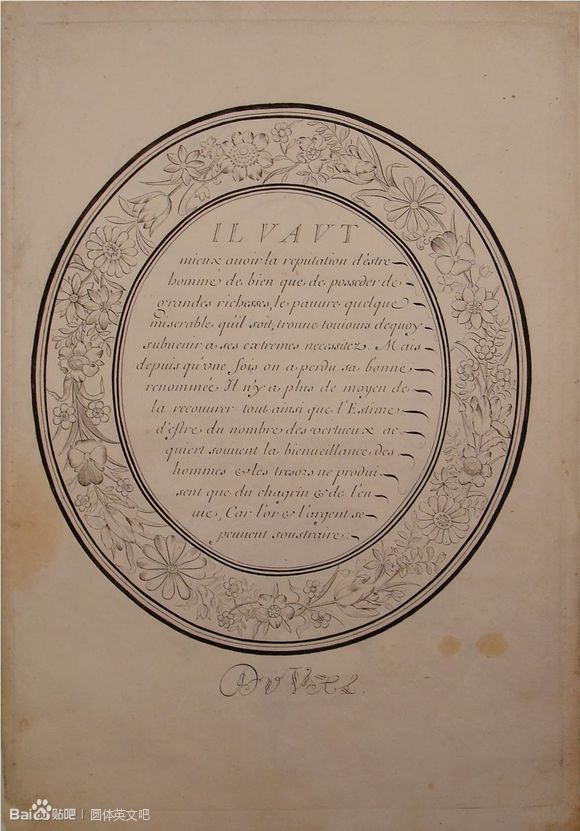 IL VAVT
mieux auoir la reputation d'estre
homme de bien que de posseder de
grandes richesses, le pauure quelque
miserable qu'il soit, trouue touiours dequoy
subuenir a ses extremes necessitez. Mais
depuis qu'vne fois on a perdu sa bonne
renommée Il n'y a plus de moyen de
la recouurer tout ainsi que l'Estime
d'estre du nombre des vertueux ac
quiert souuent la bienueillance des
hommes & les tresors ne produi
sent que du chagrin & de l'en
uie, Car l'or & l'argent se
peuuent soustraire.
DuVAL.
Bai贴吧 | 圆体英文吧